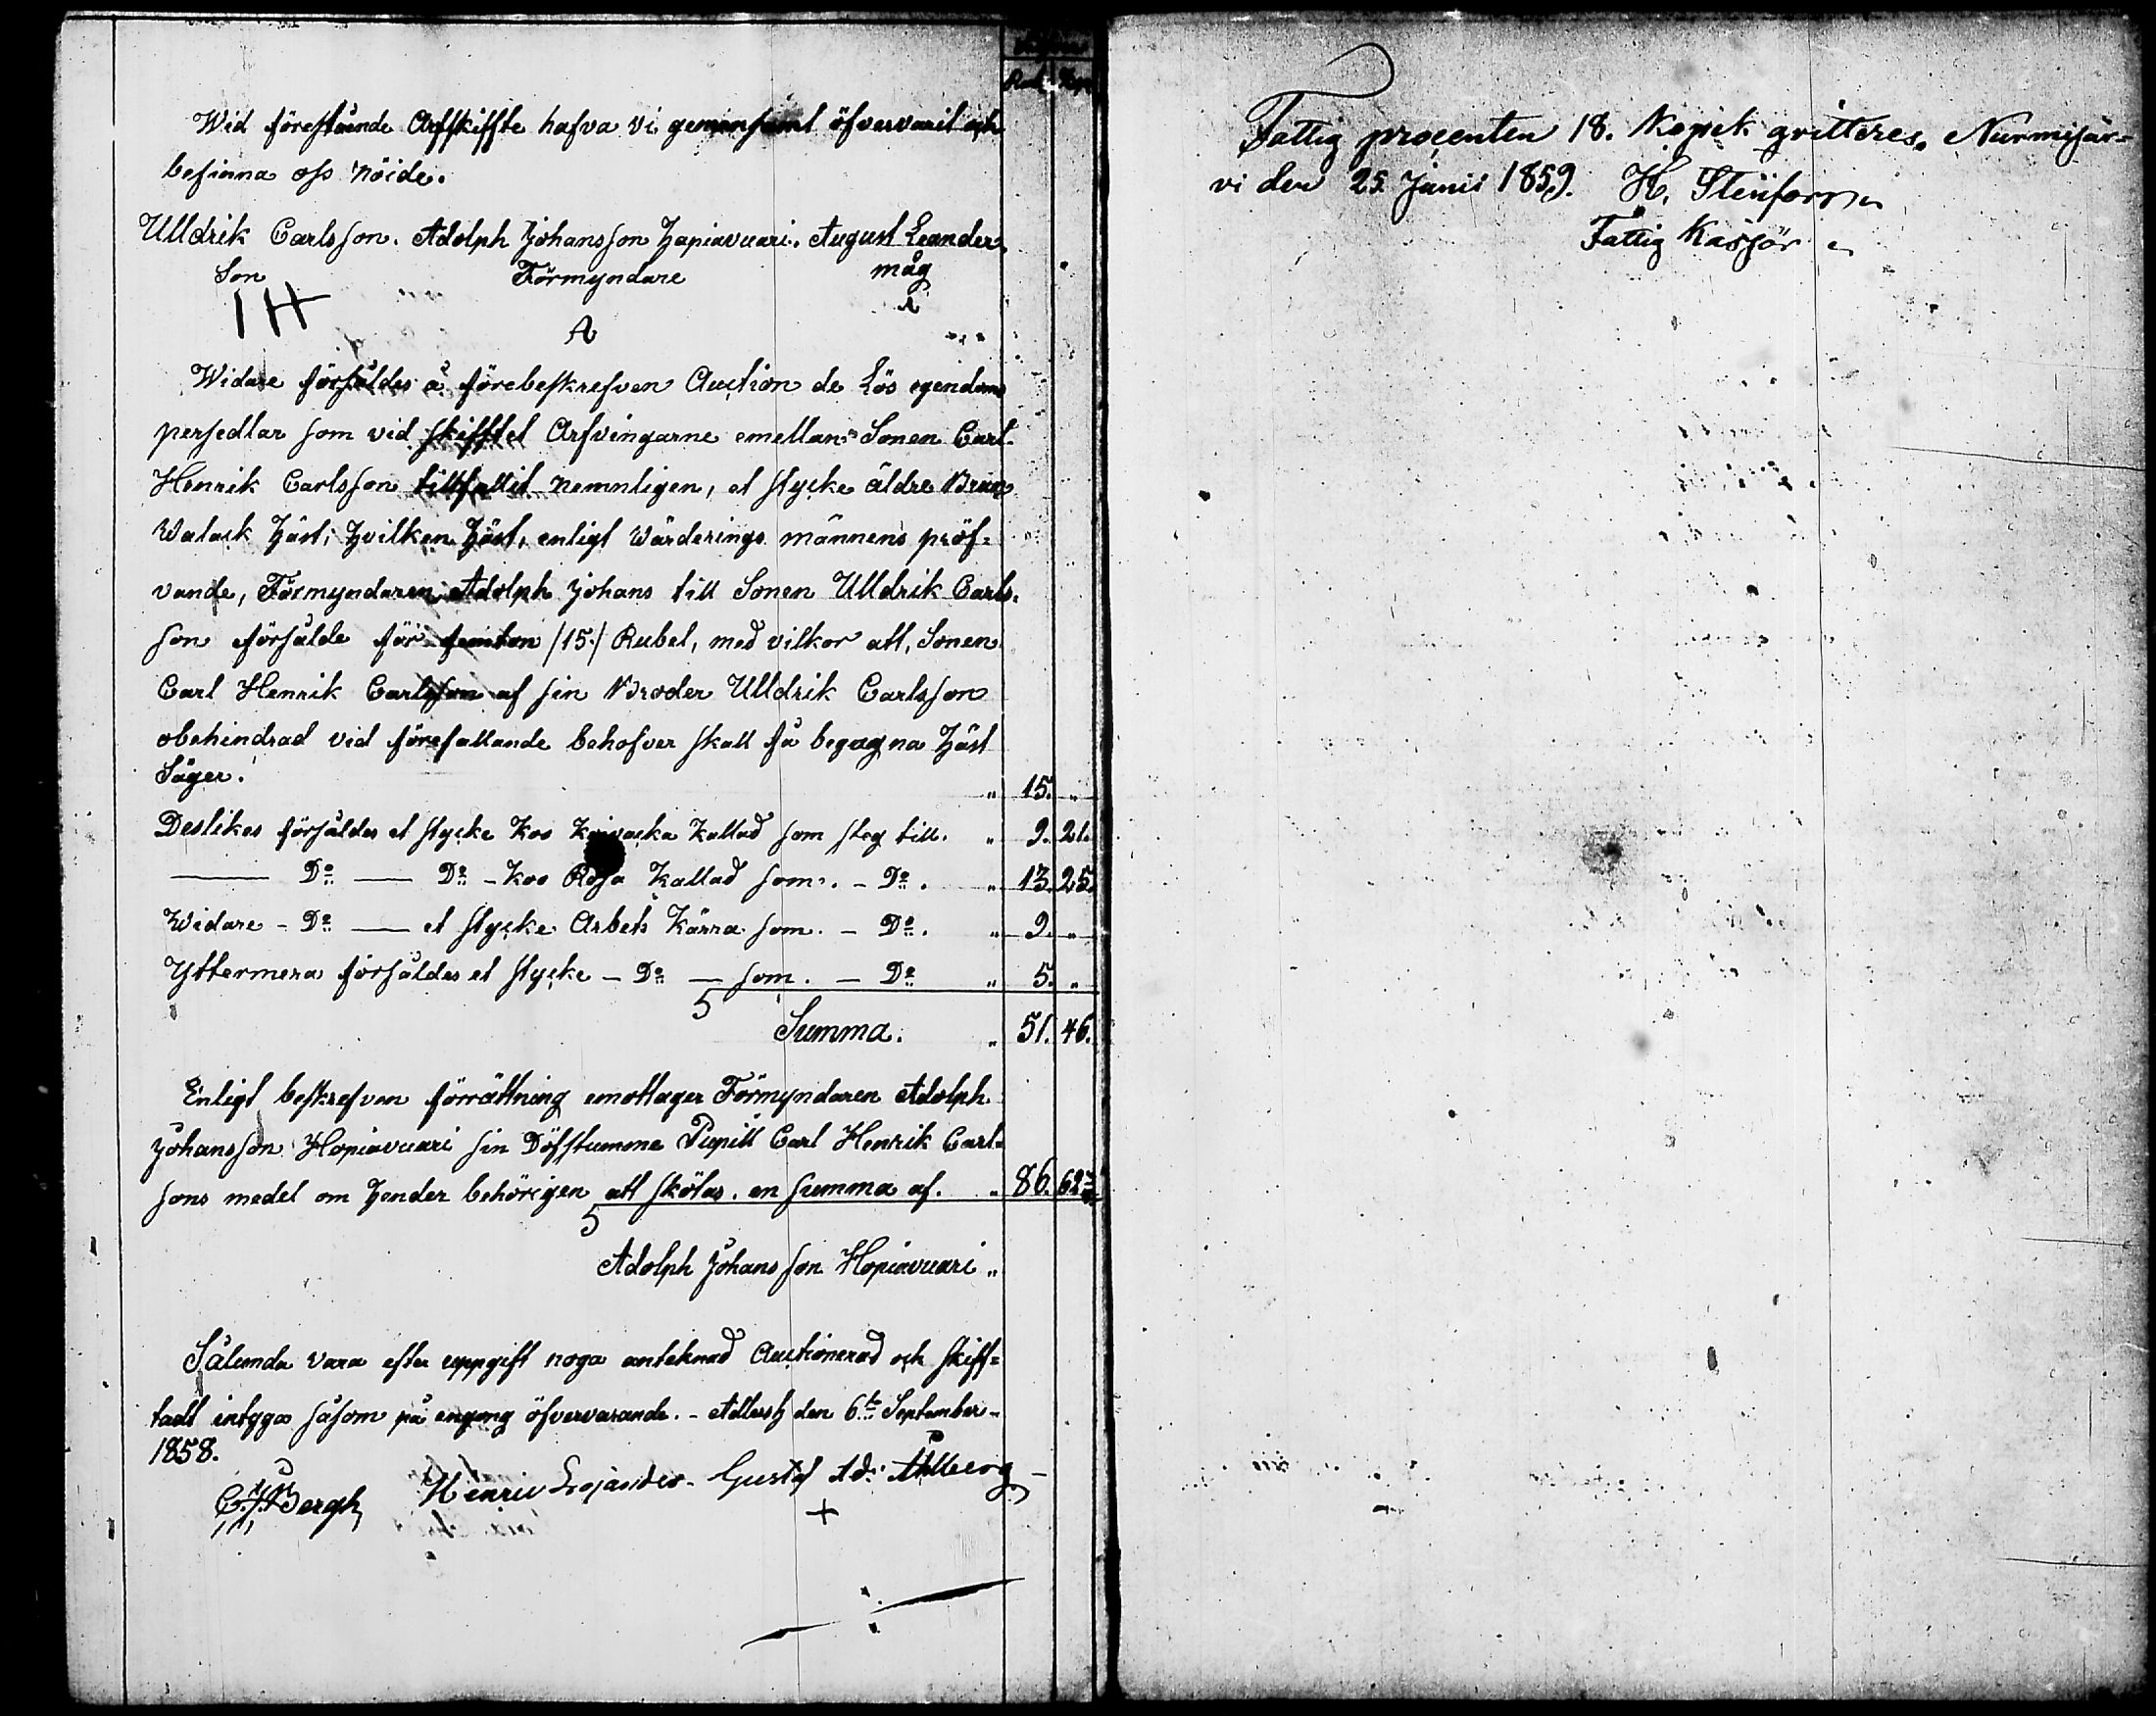 Rub. Kop.
Wid förestående Arfskiffte hafva vi gemensamt öfvervarit och
befinna oss nöide.
Ulldrik Carlsson. Adolph Johansson Hapiavuari. August Leander.
Son Förmyndare måg
A
Widare försåldes å förebeskrefven Auction de Lös egendoms
persedlar som vid skifftet Arfvingarne emellan Sonen Carl
Henrik Carlsson tillfallit nemnligen, et stycke äldre Brun
Walack Häst; Hvilken Häst, enligt Wärderings männens pröf=
vande, Förmyndaren Adolph Johans till Sonen Ulldrik Carls-
son försålde för femton /15./ Rubel, med vilkor att, Sonen
Carl Henrik Carlsson af sin Broder Ulldrik Carlsson
obehindrad vid förefallande behofver skall få begagna Häst
Säger. " 15. "
Deslikes försåldes et stycke Koo kallad som steg till. " 9. 21.
— Do — Do - Koo Rosa kallad som. - Do. " 13. 25.
Widare - Do — et stycke Arbets Kärra som. - Do. " 9. "
Yttermera försåldes et stycke - Do — som. — Do " 5. "
Summa. " 51. 46.
Enligt beskrefven förrättning emottager Förmyndaren Adolph
Johansson Hopiavuari sin Döfstumme Pupill Carl Henrik Carl=
sons medel om Hender behörigen att skötas. en summa af. " 86. 62
Adolph Johansson Hopiavuari "
Sålunda vara efter uppgift noga anteknad Auctionerad och skiff=
tadt intygas såsom på engång öfvervarande. - den 6te September -
1858.
C. J. Bergh Henric Gustaf Ad: Ahlberg
+
Fattig procenten 18. Kopek qvitteres. Nurmijär=
vi den 25. Junii 1859. H.
Fattig Kassör